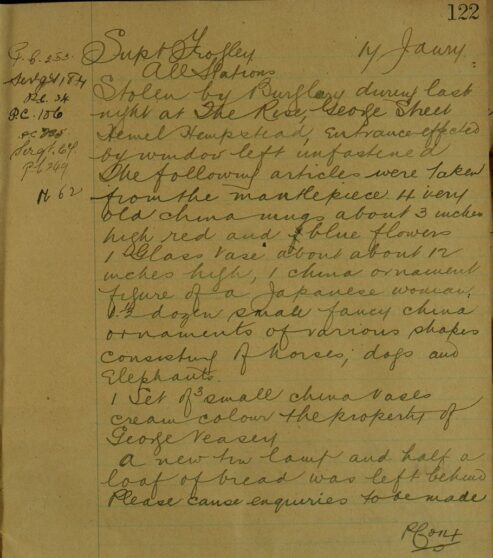 122
Supt Frogley 17 Jaury.
All Stations
P.C. 253
Sergt 184
P.C. 34
P.C. 106
Sergt. 67.
P.C. 249
H 62
Stolen by Burglary during last
night at The Rise, George Street
Hemel Hempstead, entrance effected
by window left unfastened
The following articles were taken
from the mantlepiece. 4 very
old china mugs about 3 inches
high red and blue flowers
1 Glass Vase about about 12
inches high, 1 china ornament
figure of a Japanese woman,
1½ dozen small fancy china
ornaments of various shapes
consisting of horses, dogs and
Elephants.
1 Set of 3 small china Vases
cream colour the property of
George Veasey
A new tin lamp and half a
loaf of bread was left behind
Please cause enquiries to be made